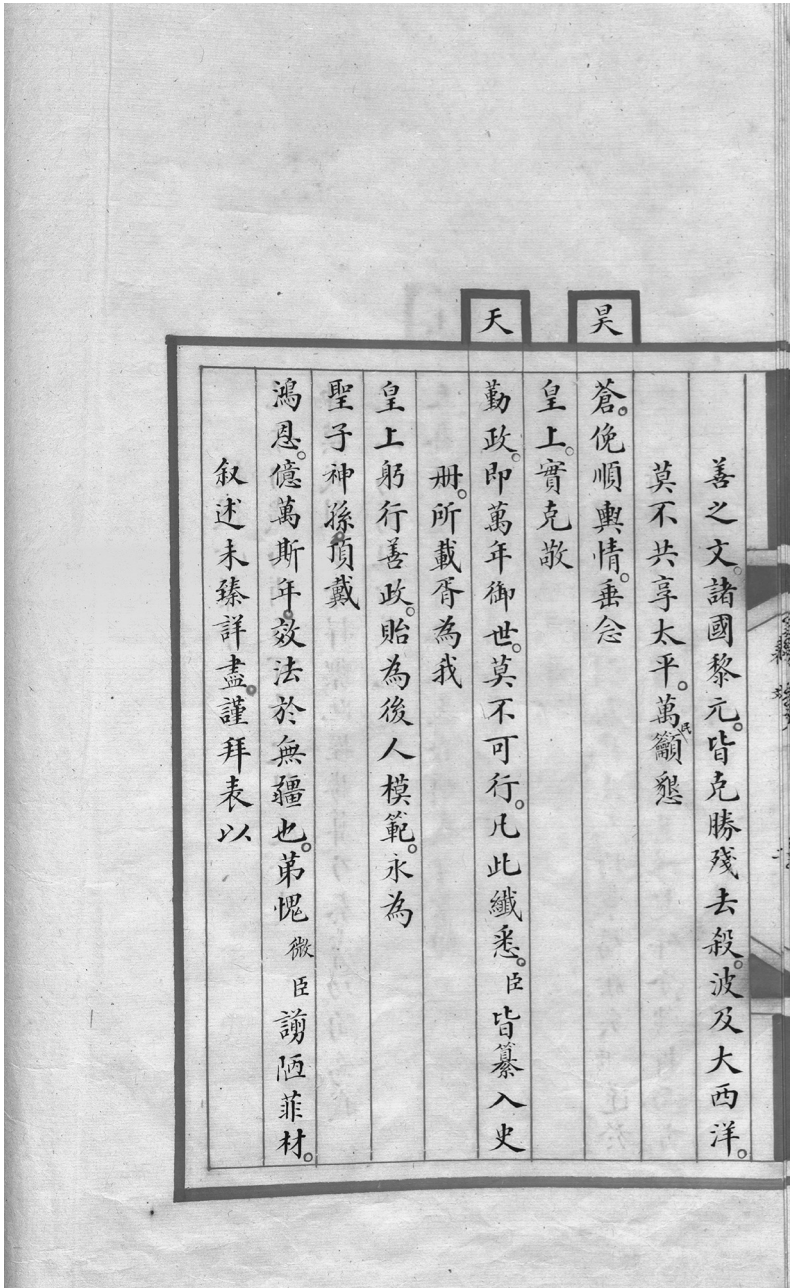 善之文。諸國黎元。皆克勝殘去殺。波及大西洋。
莫不共享太平。萬民籲懇
昊
蒼。俛順輿情。垂念
皇上。實克敬
天
勤政。即萬年御世。莫不可行。凡此纖悉。臣皆纂入史
册。所載胥為我
皇上躬行善政。貽為後人模範。永為
聖子神孫。頂戴
鴻恩。億萬斯年。效法於無疆也。第愧微臣謭陋菲材。
叙述未臻詳盡。謹拜表以